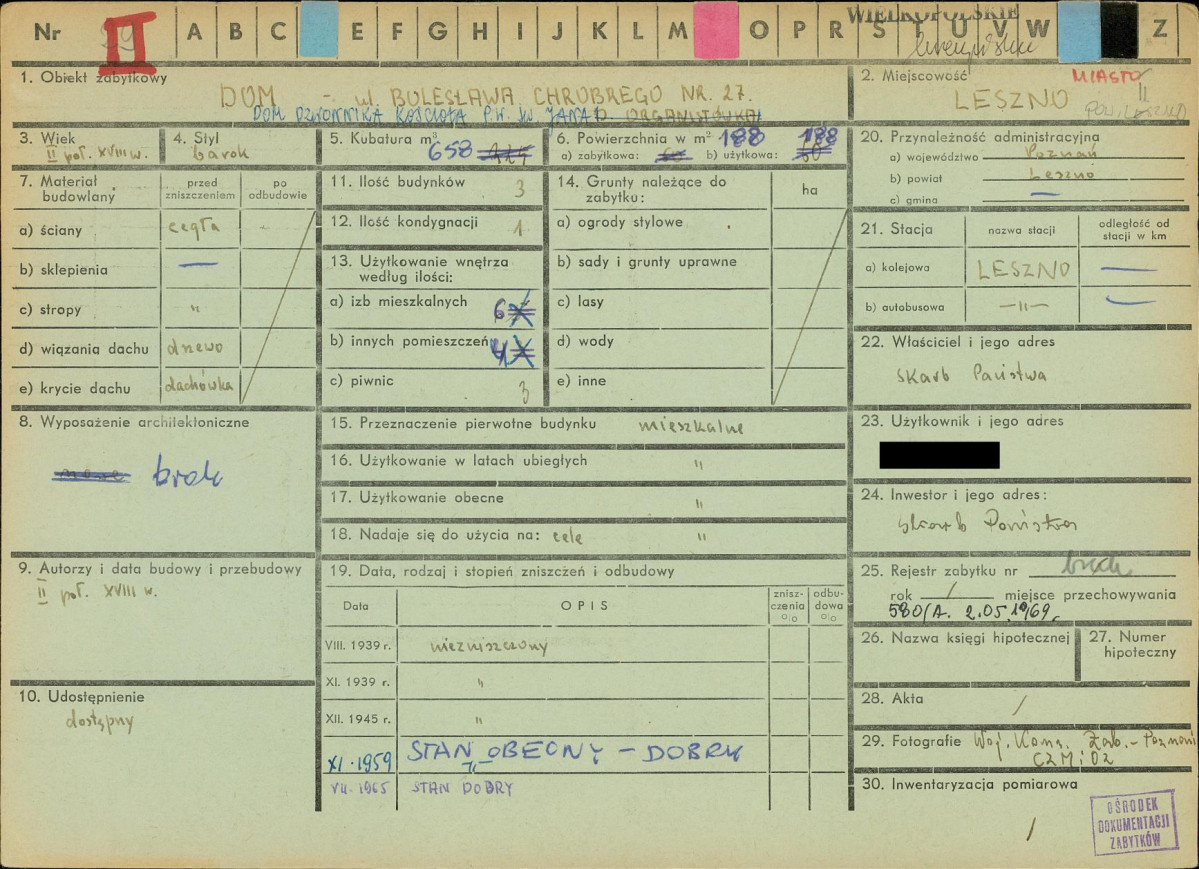 Nr II A B C E F G H I J K L M O P R S T U V W Z
WIELKOPOLSKIE
1. Obiekt zabytkowy
DOM - ul. BOLESŁAWA CHROBREGO NR. 27.
DOM DZWONNIKA KOŚCIOŁA P.W. ŚW. JANA
2. Miejscowość MIASTO
II
LESZNO
POW. LESZNO
3. Wiek
II poł. XVIII w.
4. Styl
barok
5. Kubatura m³
658
6. Powierzchnia w m² 188 188
a) zabytkowa: 60 b) użytkowa: 60
7. Materiał budowlany
przed zniszczeniem
po odbudowie
a) ściany cegła
b) sklepienia —
c) stropy "
d) wiązania dachu drzewo
e) krycie dachu dachówka
11. Ilość budynków 3
12. Ilość kondygnacji 1
13. Użytkowanie wnętrza według ilości:
a) izb mieszkalnych 6
b) innych pomieszczeń 4
c) piwnic 3
14. Grunty należące do zabytku:
ha
a) ogrody stylowe
b) sady i grunty uprawne
c) lasy
d) wody
e) inne
20. Przynależność administracyjna
a) województwo Poznań
b) powiat Leszno
c) gmina —
21. Stacja
nazwa stacji
odległość od stacji w km
a) kolejowa LESZNO —
b) autobusowa —"— —
22. Właściciel i jego adres
Skarb Państwa
8. Wyposażenie architektoniczne
brak
15. Przeznaczenie pierwotne budynku mieszkalne
16. Użytkowanie w latach ubiegłych "
17. Użytkowanie obecne "
18. Nadaje się do użycia na: cele "
23. Użytkownik i jego adres
24. Inwestor i jego adres:
Skarb Państwa
9. Autorzy i data budowy i przebudowy
II poł. XVIII w.
19. Data, rodzaj i stopień zniszczeń i odbudowy
Data
OPIS
znisz-czenia %
odbu-dowa %
VIII. 1939 r. niezniszczony
XI. 1939 r. "
XII. 1945 r. "
XI. 1959 STAN OBECNY – DOBRY
VII. 1965 STAN DOBRY
10. Udostępnienie
dostępny
25. Rejestr zabytku nr brak
rok / miejsce przechowywania
580/A. 2.05.1969.
26. Nazwa księgi hipotecznej
27. Numer hipoteczny
28. Akta /
29. Fotografie Woj. Kons. Zab. - Poznań
CZM i OZ
30. Inwentaryzacja pomiarowa
/
OŚRODEK
DOKUMENTACJI
ZABYTKÓW